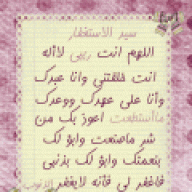 سيد الاستغفار
اللهم انت ربي لااله
انت خلقتني وانا عبدك
وأنا على عهدك ووعدك
مااستطعت اعوز بك من
شر ماصنعت وابؤ لك
بنعمتك وابؤ لك بذنبي
فاغفر لي فأنه لايغفر